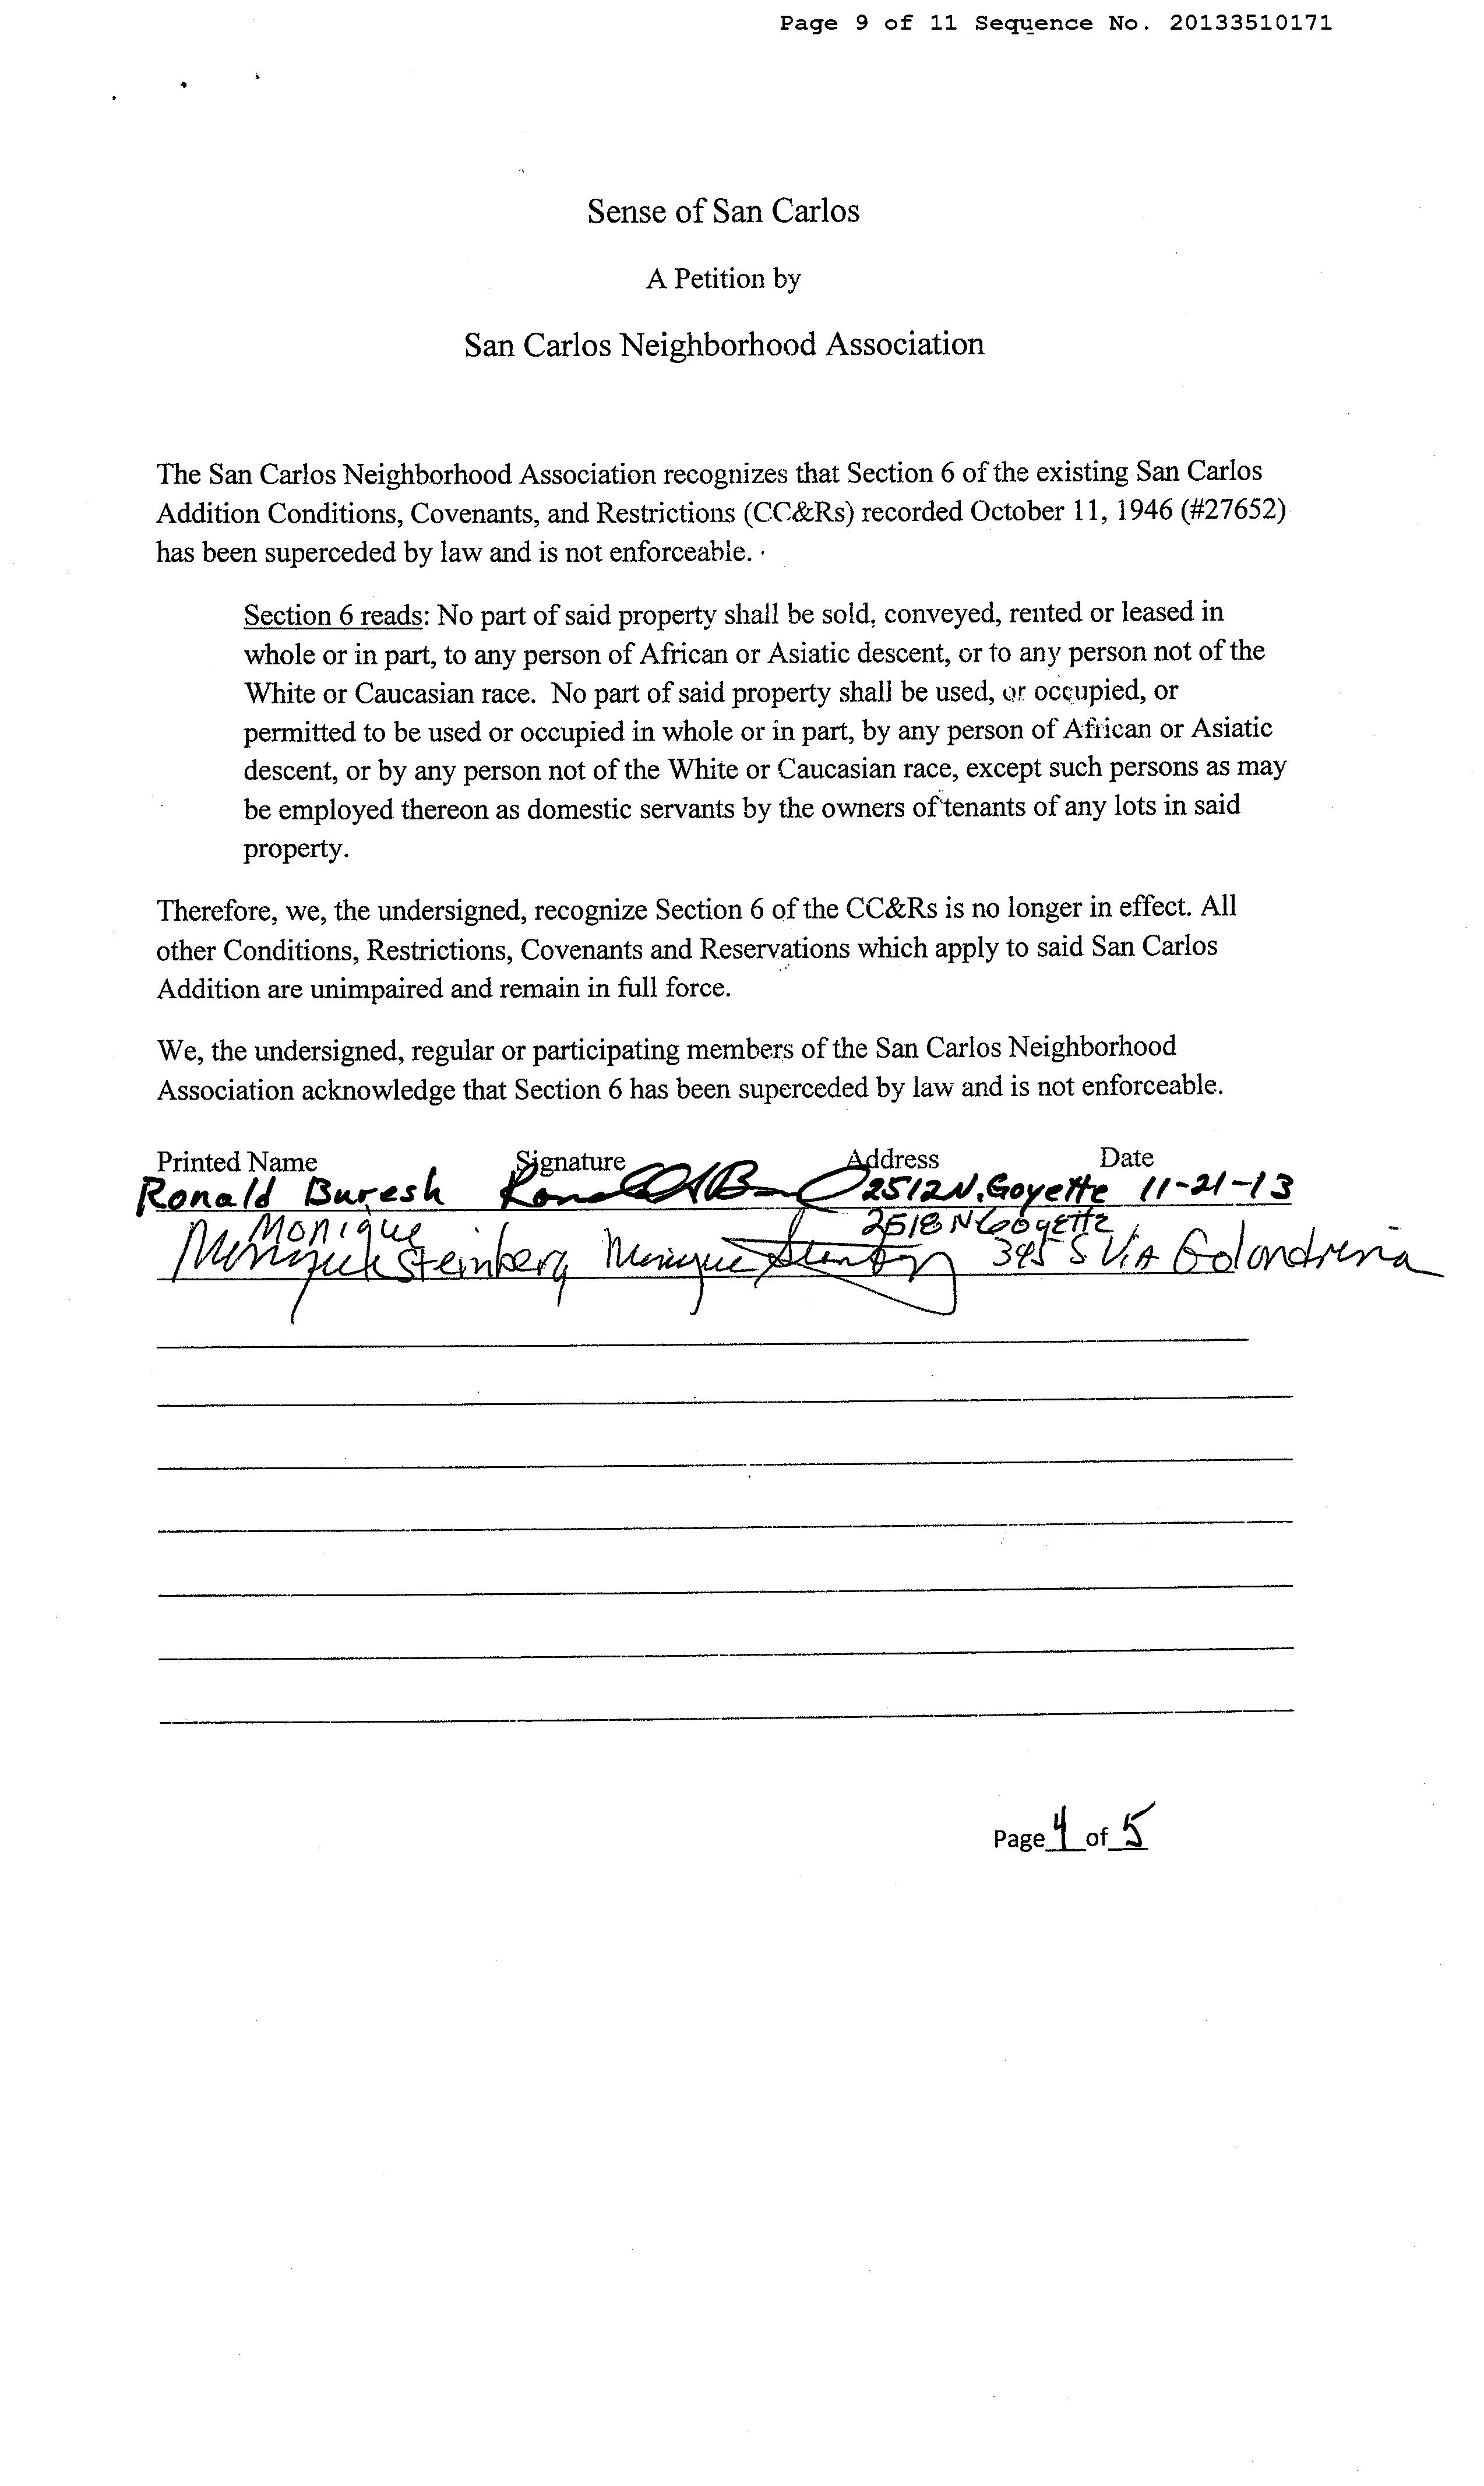 Page 9 of 11 Sequence No. 20133510171
Sense of San Carlos
A Petition by
San Carlos Neighborhood Association
The San Carlos Neighborhood Association recognizes that Section 6 of the existing San Carlos
Addition Conditions, Covenants, and Restrictions (CC&Rs) recorded October 11, 1946 (#27652)
has been superceded by law and is not enforceable.
Section 6 reads: No part of said property shall be sold, conveyed, rented or leased in
whole or in part, to any person of African or Asiatic descent, or to any person not of the
White or Caucasian race. No part of said property shall be used, or occupied, or
permitted to be used or occupied in whole or in part, by any person of African or Asiatic
descent, or by any person not of the White or Caucasian race, except such persons as may
be employed thereon as domestic servants by the owners of tenants of any lots in said
property.
Therefore, we, the undersigned, recognize Section 6 of the CC&Rs is no longer in effect. All
other Conditions, Restrictions, Covenants and Reservations which apply to said San Carlos
Addition are unimpaired and remain in full force.
We, the undersigned, regular or participating members of the San Carlos Neighborhood
Association acknowledge that Section 6 has been superceded by law and is not enforceable.
Printed Name Signature Address Date
Ronald Buresh Ronald 2512 N. Goyette 11-21-13
Monique 2518 N Goyette
Monique Steinberg Monique 395 S Via Golondrina
Page 4 of 5